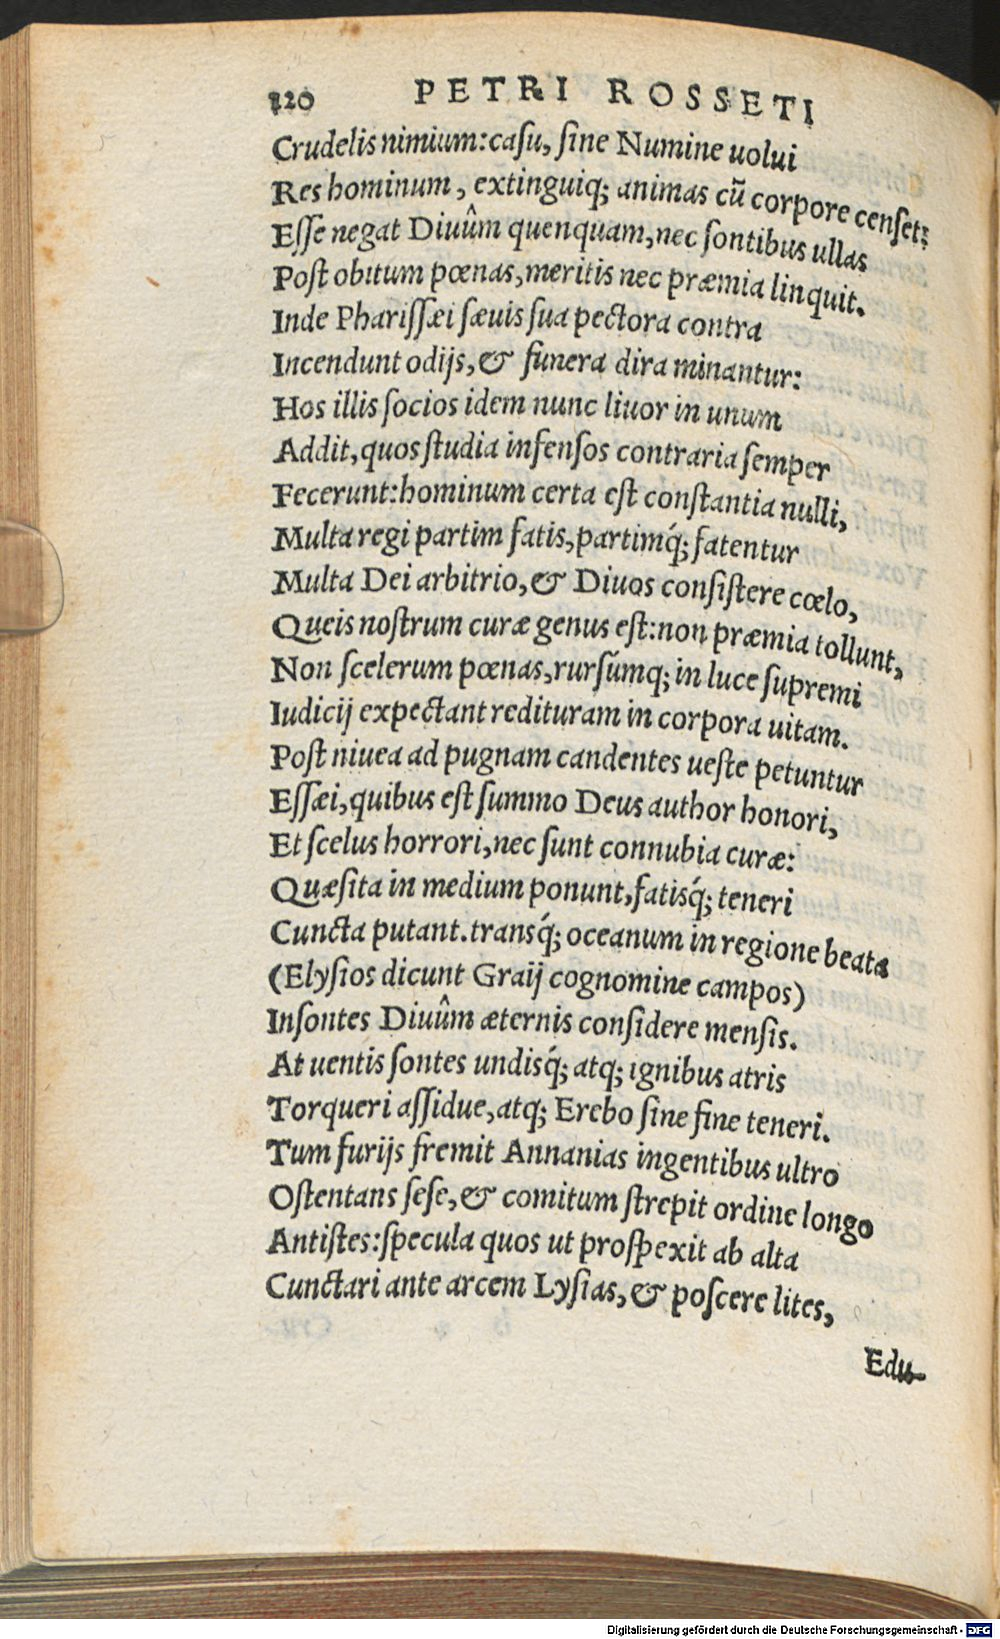 120 PETRI ROSSETI
Crudelis nimium: casu, ſine Numine uolui
Res hominum, extinguiq; animas cũ corpore cenſet:
Eſſe negat Diuûm quenquam, nec ſontibus ullas
Poſt obitum pœnas, meritis nec præmia linquit.
Inde Phariſſæi ſæuis ſua pectora contra
Incendunt odijs, & funera dira minantur:
Hos illis ſocios idem nunc liuor in unum
Addit, quos ſtudia infenſos contraria ſemper
Fecerunt: hominum certa eſt conſtantia nulli,
Multa regi partim fatis, partimq́; fatentur
Multa Dei arbitrio, & Diuos conſiſtere cœlo,
Queis noſtrum curæ genus eſt: non præmia tollunt,
Non ſcelerum pœnas, rurſúmq; in luce ſupremi
Iudicij expectant redituram in corpora uitam.
Poſt niuea ad pugnam candentes ueſte petuntur
Eſſæi, quibus eſt ſummo Deus author honori,
Et ſcelus horrori, nec ſunt connubia curæ:
Quæſita in medium ponunt, fatisq́; teneri
Cuncta putant. transq́; oceanum in regione beata
(Elyſios dicunt Graij cognomine campos)
Inſontes Diuûm æternis conſidere menſis.
At uentis ſontes undisq́; atq; ignibus atris
Torqueri aſſidue, atq; Erebo ſine fine teneri.
Tum furijs fremit Annanias ingentibus ultro
Oſtentans ſeſe, & comitum ſtrepit ordine longo
Antiſtes: ſpecula quos ut proſpexit ab alta
Cunctari ante arcem Lyſias, & poſcere lites,
Edu-
Digitalisierung gefördert durch die Deutsche Forschungsgemeinschaft - DFG